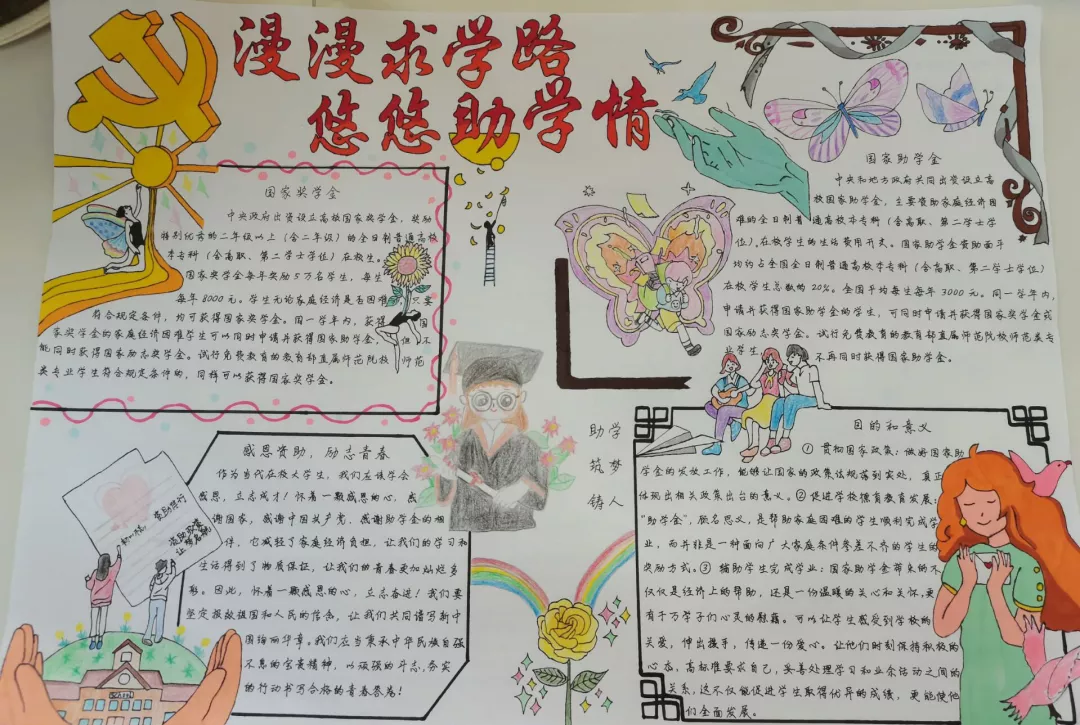 漫漫求学路
悠悠助学情
国家奖学金
中央政府出资设立高校国家奖学金,奖励
特别优秀的二年级以上(含二年级)的全日制普通高校
本专科(含高职、第二学士学位)在校生。
国家奖学金每年奖励5万名学生,每生
每年8000元。学生无论家庭经济是否困难,只要
符合规定条件,均可获得国家奖学金。同一学年内,获得国
家奖学金的家庭经济困难学生可以同时申请并获得国家助学金,但不
能同时获得国家励志奖学金。试行免费教育的教育部直属师范院校师范
类专业学生符合规定条件的,同样可以获得国家奖学金。
国家助学金
中央和地方政府共同出资设立高
校国家助学金,主要资助家庭经济困
难的全日制普通高校本专科(含高职、第二学士学
位)在校学生的生活费用开支。国家助学金资助面平
均约占全国全日制普通高校本专科(含高职、第二学士学位)
在校学生总数的20%。全国平均每生每年3000元。同一学年内,
申请并获得国家助学金的学生,可同时申请并获得国家奖学金或
国家励志奖学金。试行免费教育的教育部直属师范院校师范类专
业学生不再同时获得国家助学金。
助学
筑梦
铸人
感恩资助,励志青春
作为当代在校大学生,我们应该学会
感恩,立志成才!怀着一颗感恩的心,感
谢国家,感谢中国共产党,感谢助学金的相
伴,它减轻了家庭经济负担,让我们的学习和
生活得到了物质保证,让我们的青春更加灿烂多
彩。因此,怀着一颗感恩的心,立志奋进!我们要
坚定报效祖国和人民的信念,让我们共同谱写新中
国绚丽华章。我们应当秉承中华民族自强
不息的宝贵精神,以顽强的斗志,务实
的行动书写合格的青春答卷!
目的和意义
① 贯彻国家政策:做好国家助
学金的发放工作,能够让国家的政策法规落到实处,真正
体现出相关政策出台的意义。②促进学校德育教育发展:
"助学金",顾名思义,是帮助家庭困难的学生顺利完成学
业,而并非是一种面向广大家庭条件参差不齐的学生的
奖励方式。③ 辅助学生完成学业:国家助学金带来的不
仅仅是经济上的帮助,还是一份温暖的关心和关怀,更
有千万学子们心灵的慰藉。可以让学生感受到学校的
关爱,伸出援手,传递一份爱心。让他们时刻保持积极的
心态,高标准要求自己,妥善处理学习和业余活动之间的
关系,这不仅能促进学生取得优异的成绩,更能使他
们全面发展。